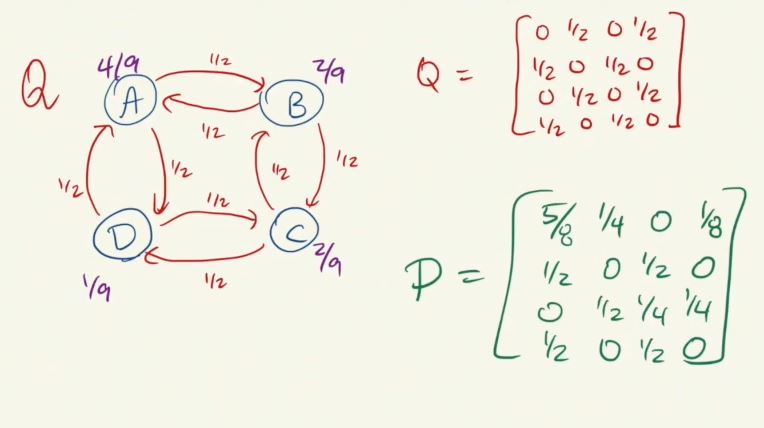 Q
4/9 1/2 2/9
A B
1/2
1/2 1/2 1/2 1/2
1/2
D C
1/9 1/2 2/9
Q =
0 1/2 0 1/2
1/2 0 1/2 0
0 1/2 0 1/2
1/2 0 1/2 0
P =
5/8 1/4 0 1/8
1/2 0 1/2 0
0 1/2 1/4 1/4
1/2 0 1/2 0